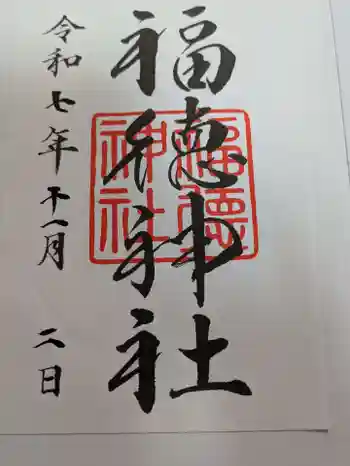 福徳神社
福德
神社
令和七年十一月二日